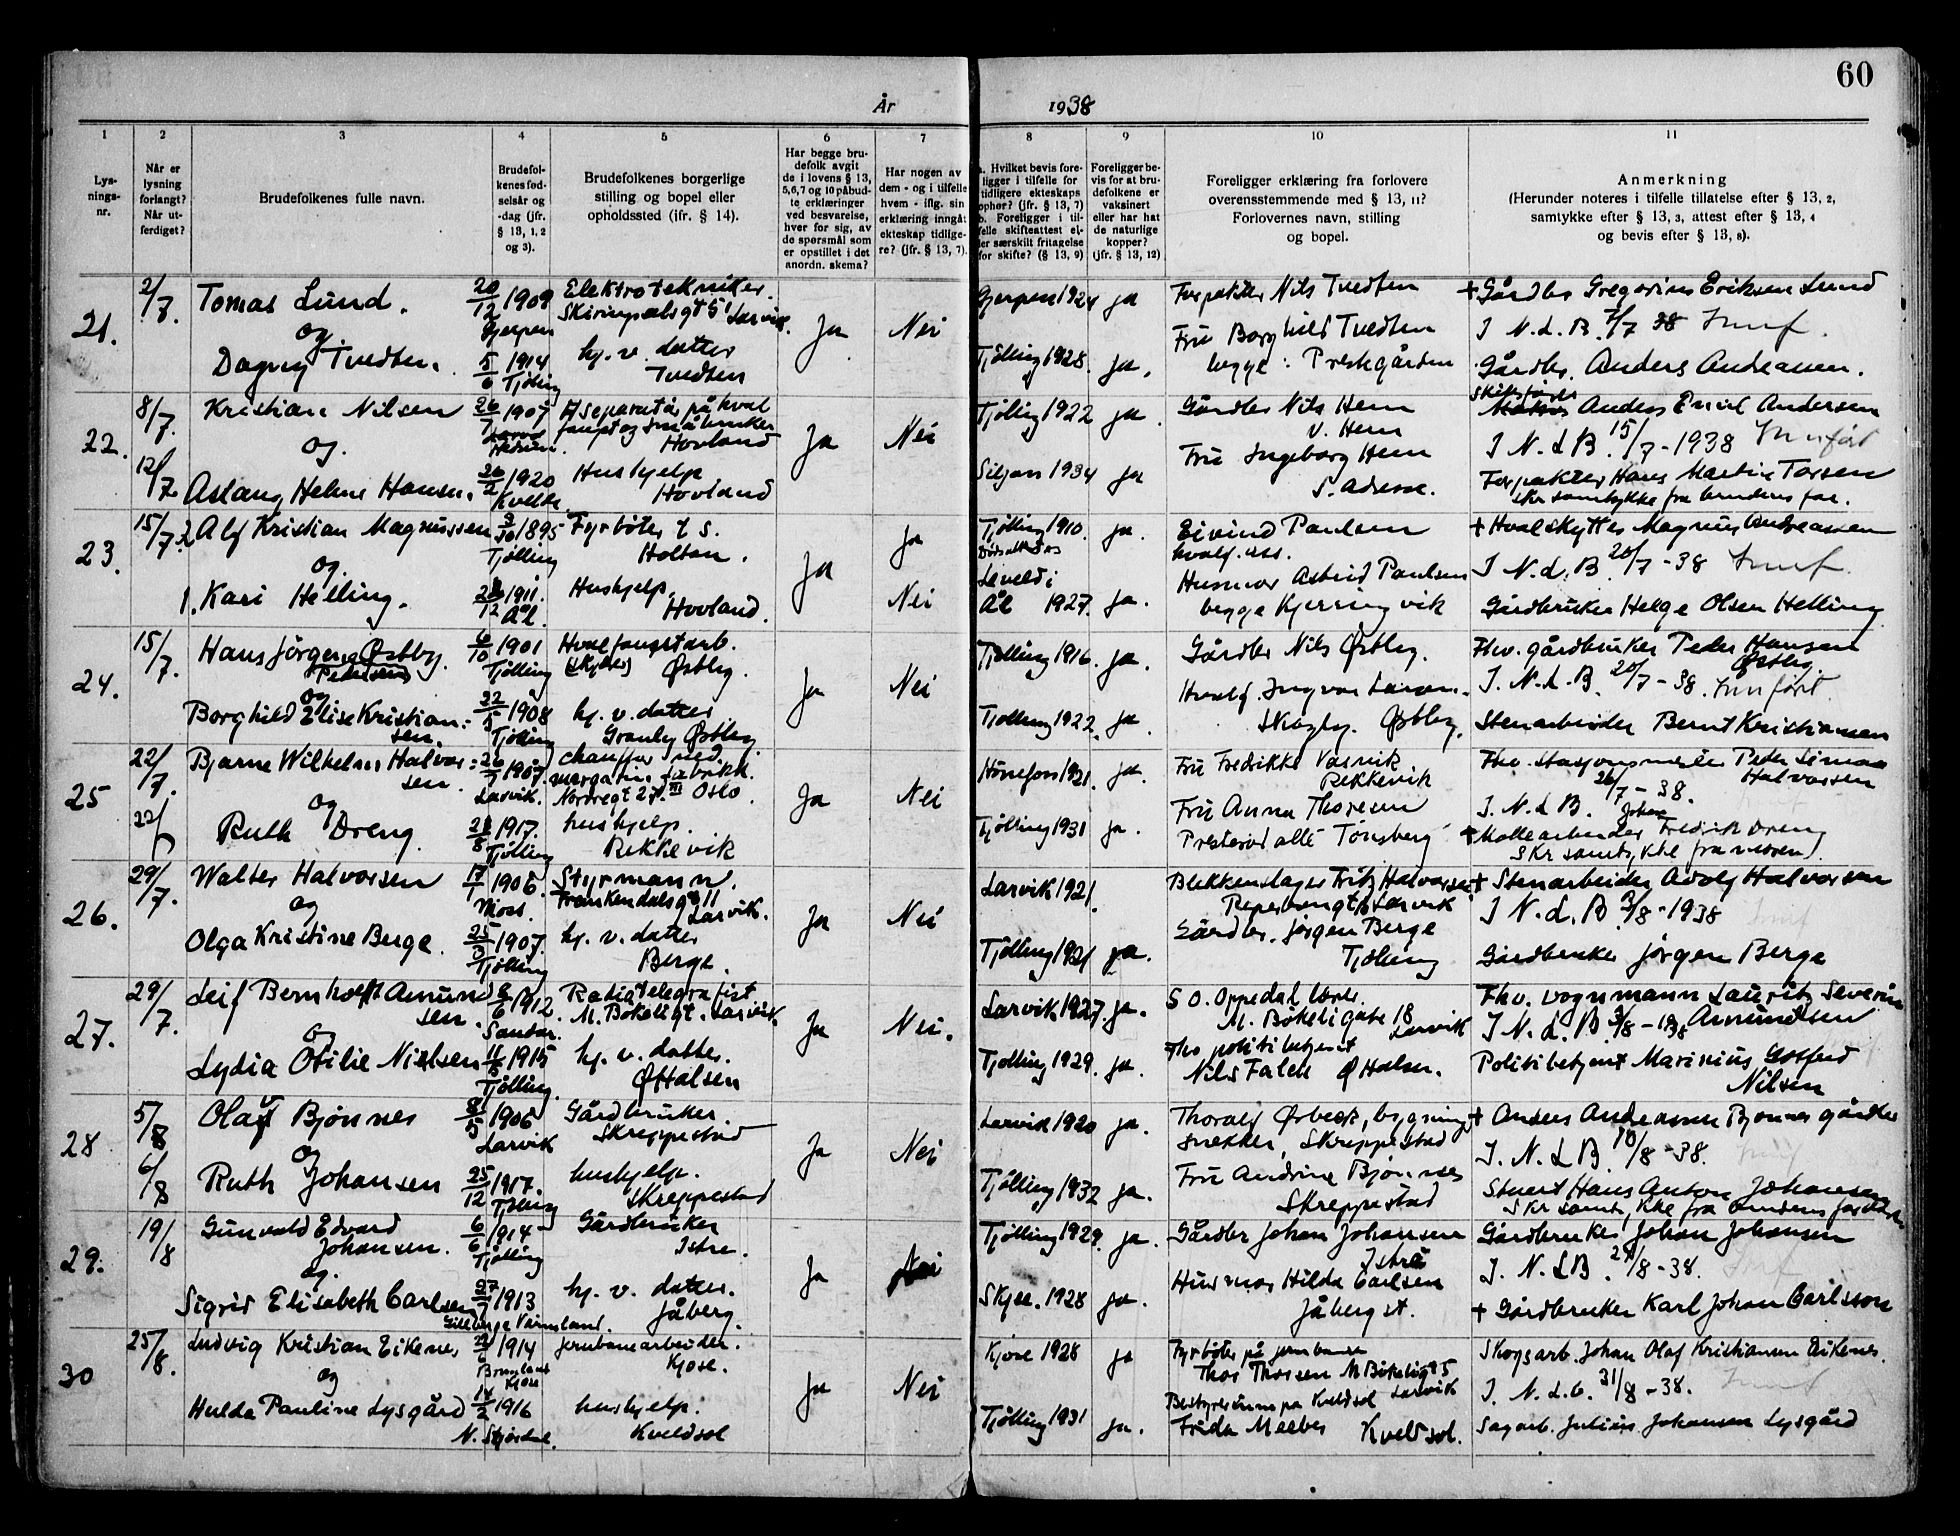 60
År 1938
1 2 3 4 5 6 7 8 9 10 11
Lys-
nings-
nr.
Når er
lysning
forlangt?
Når ut-
ferdiget?
Brudefolkenes fulle navn.
Brudefol-
kenes fød-
selsår og
-dag (jfr.
§ 13, 1, 2
og 3).
Brudefolkenes borgerlige
stilling og bopel eller
opholdssted (ifr. § 14).
Har begge bru-
defolk avgit
de i lovens § 13,
5,6,7 og 10 påbud-
te erklæringer
ved besvarelse,
hver for sig, av
de spørsmål som
er opstillet i det
anordn. skema?
Har nogen av
dem - og i tilfelle
hvem - iflg. sin
erklæring inngåt
ekteskap tidlige-
re? (jfr. § 13, 7).
a. Hvilket bevis fore-
ligger i tilfelle for
tidligere ekteskaps
ophør? (jfr. § 13, 7)
b. Foreligger i til-
felle skifteattest el-
ler særskilt fritagelse
for skifte? (§ 13, 9)
Foreligger be-
vis for at bru-
defolkene er
vaksinert
eller har hat
de naturlige
kopper?
(jfr. § 13, 12)
Foreligger erklæring fra forlovere
overensstemmende med § 13, 11?
Forlovernes navn, stilling
og bopel.
Anmerkning
(Herunder noteres i tilfelle tillatelse efter § 13, 2,
samtykke efter § 13, 3, attest efter § 13, 4
og bevis efter § 13, 8).
21.
2/7.
Tomas Lund.
og
Dagny Tvedten.
20/12 1909
Gjerpen
5/6 1914
Tjølling
Elektrotekniker.
Skiringsalsgt 5 Larvik.
hj. v. datter
Tvedten
Ja
Nei
Gjerpen 1924 ja
Tjølling 1928. ja.
Forpakter Nils Tvedten
Fru Borghild Tvedten
begge: Prestegården
+ Gårdbr Gregorius Eriksen Lund
I N. L. B. 7/7 38 Innf.
Gårdbr. Anders Andreasen.
22.
8/7.
12/7
Kristian Nilsen
og.
Aslaug Helene Hansen.
26/7 1907
Hedrum.
26/2 1920
Kvelde
Separatør på hval
fangst og småbruker
Hovland
Hushjelp
Hovland
Ja
Nei
Tjølling 1922 ja.
Siljan 1934 ja
Gårdbr Nils Hem
v. Hem
Fru Ingeborg Hem
S. adresse.
Skibsfører
Anders Emil Andersen
I N. L B. 15/7 - 1938 Innført
Forpakter Hans Martin Torsen
skr samtykke fra brudens far.
23.
15/7
2 Alf Kristian Magnussen
og.
1. Kari Helling.
3/10 1895
Tjølling
1911.
12 Ål.
Fyrbøter t s.
Holtan.
Hushjelp.
Hovland.
Ja
Ja
Nei
Tjølling 1910. ja.
Dødsattest
Ål 1927. ja.
Eivind Paulsen
hvalf. ass.
Husmor Astrid Paulsen
begge Kjerringvik
+ Hvalskytter Magnus Andreassen
I N. L. B. 20/7 - 38 Innf.
Gårdbruker Helge Olsen Helling
24.
15/7.
Hans Jørgen Østby.
Pedersen
og
Borghild Elise Kristian-
sen.
6/10 1901
Tjølling
22/5 1908
Tjølling
Hvalfangstarb.
(skytter) Østby.
hj. v. datter
Granly Østby.
Ja
Nei
Tjølling 1916. ja.
Tjølling 1922. ja.
Gårdbr Nils Østby.
Hvalf. Ingvar Larsen.
Skogly. Østby.
Fhv. gårdbruker Peder Hansen
Østby.
I. N. L. B. 20/7 - 38. Innført
Stenarbeider Bernt Kristiansen
25
22/7.
22/7
Bjarne Wilhelm Halvor-
sen.
og
Ruth Dreng
26/7 1907.
Larvik.
21/8 1917.
Tjølling
chauffør ved
margarinfabrikk.
Nordregt 27 III Oslo.
hushjelp.
Rekkevik
Ja
Nei
Hønefoss 1921. ja.
Tjølling 1931 ja.
Fru Fredrikke Varvik
Rekkevik
Fru Anna Thoresen
Presterød allé Tønsberg
Fhv. stasjonsmester Peder Simon
Halvorsen
I. N. L B. 26/7 - 38.
Johan
+ Møllearbeider Fredrik Dreng
Skr samtykke fra moren.
26.
29/7.
Walter Halvorsen
og
Olga Kristine Berge.
17/1 1906.
Moss.
25/3 1907.
Tjølling
Styrmann.
Frankendalsgt 11
Larvik.
hj. v. datter
Berge.
Ja
Nei
Larvik 1921.
Tjølling 1921 ja.
Blikkenslager Fritz Halvorsen
Reperbanegt Larvik
Gårdbr. Jørgen Berge
Tjølling
+ Stenarbeider Adolf Halvorsen
I N. L. B 3/8 - 1938
Gårdbruker Jørgen Berge
27.
29/7.
Leif Bernhoft Amund
sen.
og
Lydia Otilie Nielsen
6/6 1912.
Sandar.
11/5 1915
Tjølling.
Radiotelegrafist
M. Bøkeligt. Larvik
hj. v. datter.
Ø Halsen
Ja
Nei.
Larvik 1927. ja.
Tjølling 1929. ja.
S O. Oppedal
M. Bøkeligate 18
Larvik
Fhv politibetjent
Nils Falch Ø Halsen.
Fhv. vognmann Lauritz Severin
I N. L. B 3/8 - 1938 Amundsen
Politibetjent Marinius Gotfred
Nilsen
28
5/8
6/8
Olaf Bjønnes
og
Ruth Johansen
8/5 1906
Larvik
25/12 1917.
Tjølling
Gårdbruker.
Skreppestad
hushjelp.
Skreppestad
Ja
Nei
Larvik 1920 ja.
Tjølling 1932 ja.
Thoralf Ørbeck, bygning
snekker, Skreppestad
Fru Andrine Bjønnes
Skreppestad
+ Anders Andreassen Bjønnes gårdbr
I. N. L B 10/8 - 38.
Stuert Hans Anton Johansen
Skr samtykke fra brudens foreldre
29.
19/8
Gunvald Edvard
Johansen.
og.
Sigrid Elisabeth Carlsen
6/6 1914
Tjølling
27/7 1913
Gillberga Värmland.
Gårdbruker
Istre.
hj. v. datter.
Jåberg.
Ja
Nei
Tjølling 1929. ja.
Skjee. 1928 ja.
Gårdbr Johan Johansen
Istre
Husmor Hilda Carlsen
Jåberg st.
Gårdbruker Johan Johansen
I. N. L B. 24/8 - 38. Innf
+ Gårdbruker Karl Johan Carlsson
30
25/8.
Ludvig Kristian Eikenes
og
Hulda Pauline Lysgård
1914
Brunlanes
Kjose
14/2 1916
N. Stjørdal.
Jernbanearbeider.
Kjose.
hushjelp.
Kveldsol
Ja
Nei
Kjose 1928 ja
Tjølling 1931 ja.
Fyrbøter på jernbanen
Thor Thorsen M Bøkeligt 5
Larvik
Bestyrerinne på Kveldsol
Frida Melbex Kveldsol.
Skogsarb. Johan Olaf Kristiansen Eikenes.
I. N. L. B. 31/8 - 38. Innf
Sagarb. Julius Johansen Lysgård